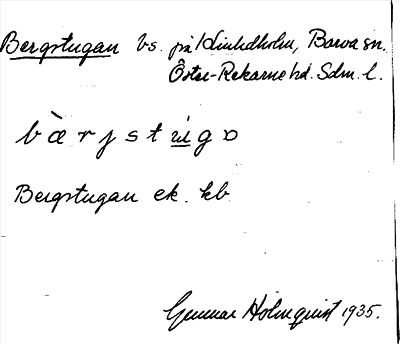 Bergstugan bs. på Lindholm, Barva sn.
Öster-Rekarne hd. Sdm. l.
bærjstugɔ
Bergstugan ek. kb
Gunnar Holmquist 1935.